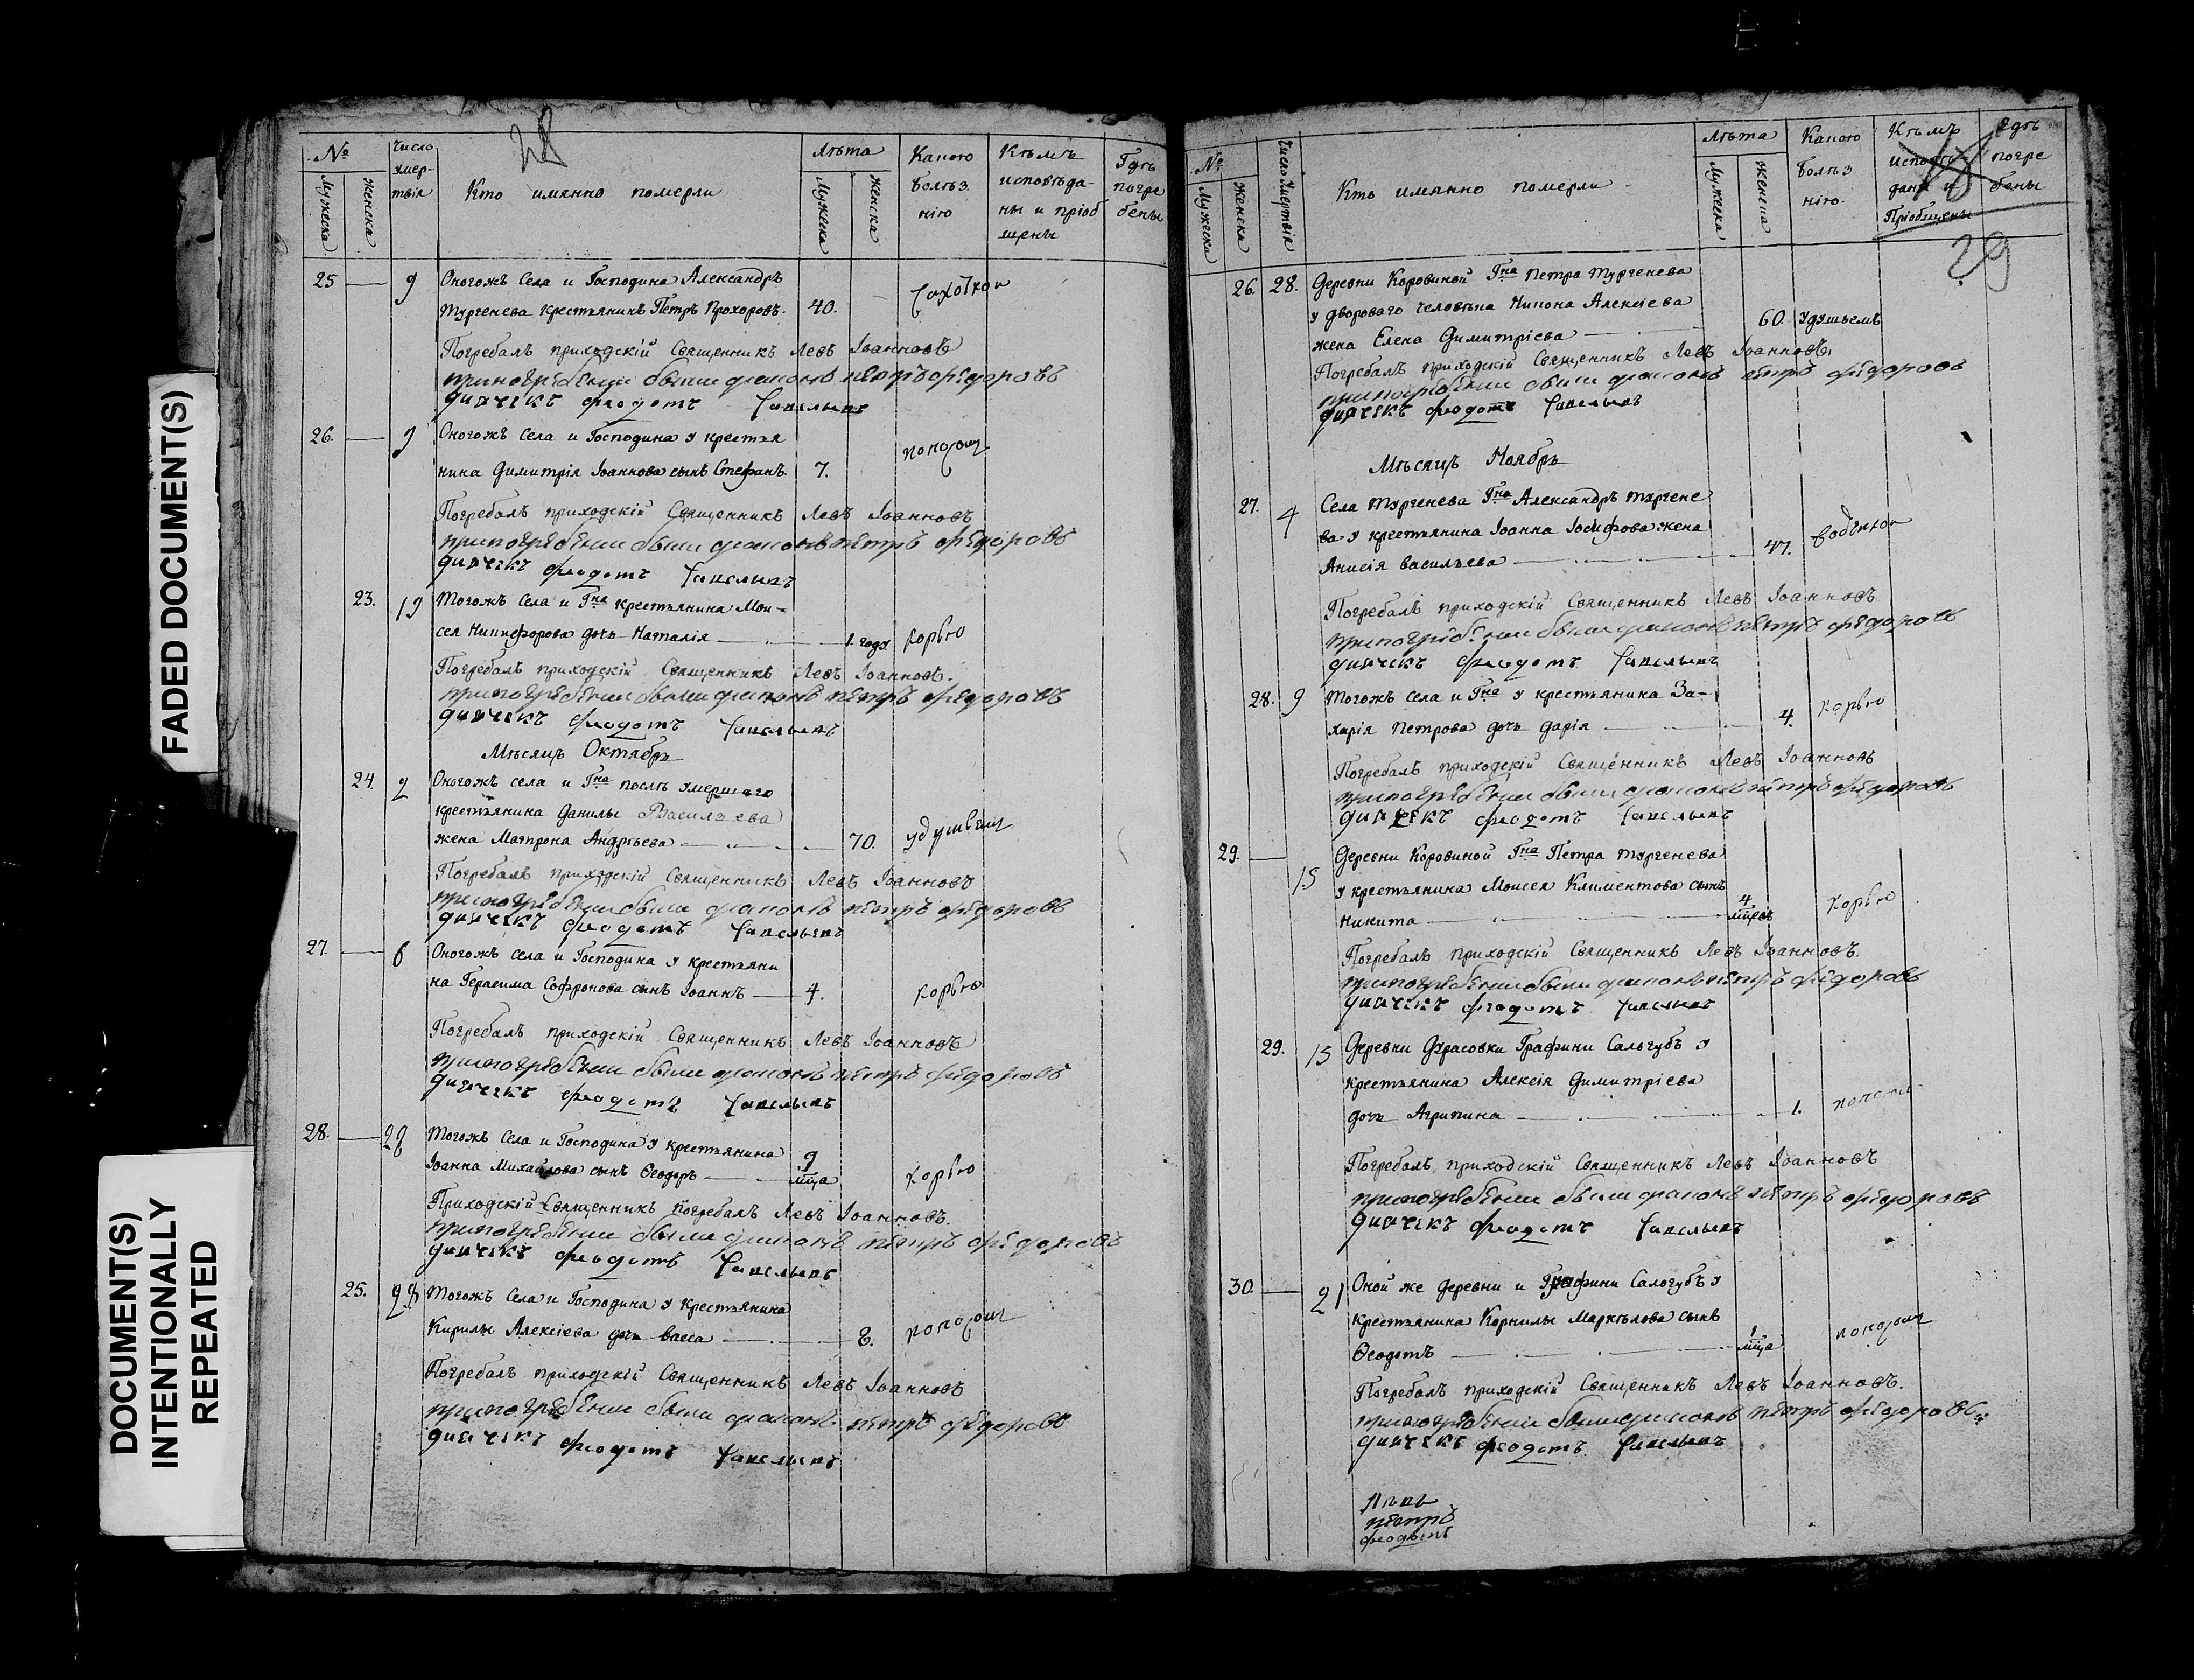 FADED DOCUMENT(S)
DOCUMENT(S)
INTENTIONALLY
REPEATED
28
№ Число умертвія Кто имянно померли Лѣта Какою болѣзнію Кѣмъ исповѣданы и пріобщены Гдѣ погребены
Мужеска Женска Мужеска Женска
25 9 Оногожъ Села и Господина Александръ
Тургенева крестьянинъ Петръ Прохоровъ. 40. чахоткою
Погребалъ приходскій Священникъ Левъ Іоанновъ
припогребении были диаконъ петръ федоровъ
диячекъ феодотъ
26. 9 Оногожъ Села и Господина у крестья
нина Димитрія Іоаннова сынъ Стефанъ. 7.
Погребалъ приходскій Священникъ Левъ Іоанновъ
припогребении были диаконъ петръ федоровъ
диячекъ феодотъ
23. 19 Тогожъ Села и Гна крестьянина Мои-
сея Никифорова дочь Наталія 1. году корью
Погребалъ приходскій Священникъ Левъ Іоанновъ.
припогребении были диаконъ петръ федоровъ
диячекъ феодотъ
Мѣсяцъ Октябрь
24. 2 Оногожъ села и Гна послѣ умершаго
крестьянина Данилы Васильева
жена Матрона Андрѣева 70. удушьем
Погребалъ приходскій Священникъ Левъ Іоанновъ
припогребении были диаконъ петръ федоровъ
диячекъ феодотъ
27. 6 Оногожъ села и Господина у крестьяни
на Герасима Софронова сынъ Іоаннъ 4. корью
Погребалъ приходскій Священникъ Левъ Іоанновъ
припогребении были диаконъ петръ федоровъ
диячекъ феодотъ
28. Тогожъ Села и Господина у крестьянина 9
Іоанна Михайлова сынъ Ѳеодоръ мца корью
Приходскій Священникъ погребалъ Левъ Іоанновъ.
припогребении были диаконъ петръ федоровъ
диячекъ феодотъ
25. Тогожъ Села и Господина у крестьянина
Кирилы Алексіева дочь васса 8.
Погребалъ приходскій Священникъ Левъ Іоанновъ
припогребении были диаконъ петръ федоровъ
диячекъ феодотъ
№ Число Умертвія Кто имянно померли Лѣта Какою болѣзнію. Кѣмъ исповѣданы и Пріобщены Гдѣ погребены
Мужеска Женска Мужеска Женска
29
26. 28. Деревни Коровиной Гна Петра Тургенева
у двороваго человѣка Никона Алексіева
жена Елена Димитріева 60. удушьемъ
Погребалъ приходскій Священникъ Левъ Іоанновъ.
припогребении были диаконъ петръ федоровъ
диячекъ феодотъ
Мѣсяцъ Ноябрь
27. 4 Села Тургенева Гна Александръ Тургене
ва у крестьянина Іоанна Іосифова жена
Анисія васильева 47.
Погребалъ приходскій Священникъ Левъ Іоанновъ
припогребении были диаконъ петръ федоровъ
диячекъ феодотъ
28. 9 Тогожъ Села и Гна у крестьянина За-
харія Петрова дочь дарія 4. корью
Погребалъ приходскій Священникъ Левъ Іоанновъ
припогребении были диаконъ петръ федоровъ
диячекъ феодотъ
29. 15 Деревни Коровиной Гна Петра Тургенева
у крестьянина Моисея Климентова сынъ 4
Никита корью
Погребалъ приходскій Священникъ Левъ Іоанновъ.
припогребении были диаконъ петръ федоровъ
диячекъ феодотъ
29. 15 Деревни Дурасовки Графини Салогубъ у
крестьянина Алексія Димитріева
дочь Агрипина 1.
Погребалъ приходскій Священникъ Левъ Іоанновъ
припогребении были диаконъ петръ федоровъ
диячекъ феодотъ
30. 21 Оной же деревни и Графини Салогубъ у
крестьянина Корнилы Маркѣлова сынъ 1
Ѳеодотъ мца
Погребалъ приходскій Священникъ Левъ Іоанновъ.
припогребении были диаконъ петръ федоровъ
диячекъ феодотъ
петръ
феодотъ